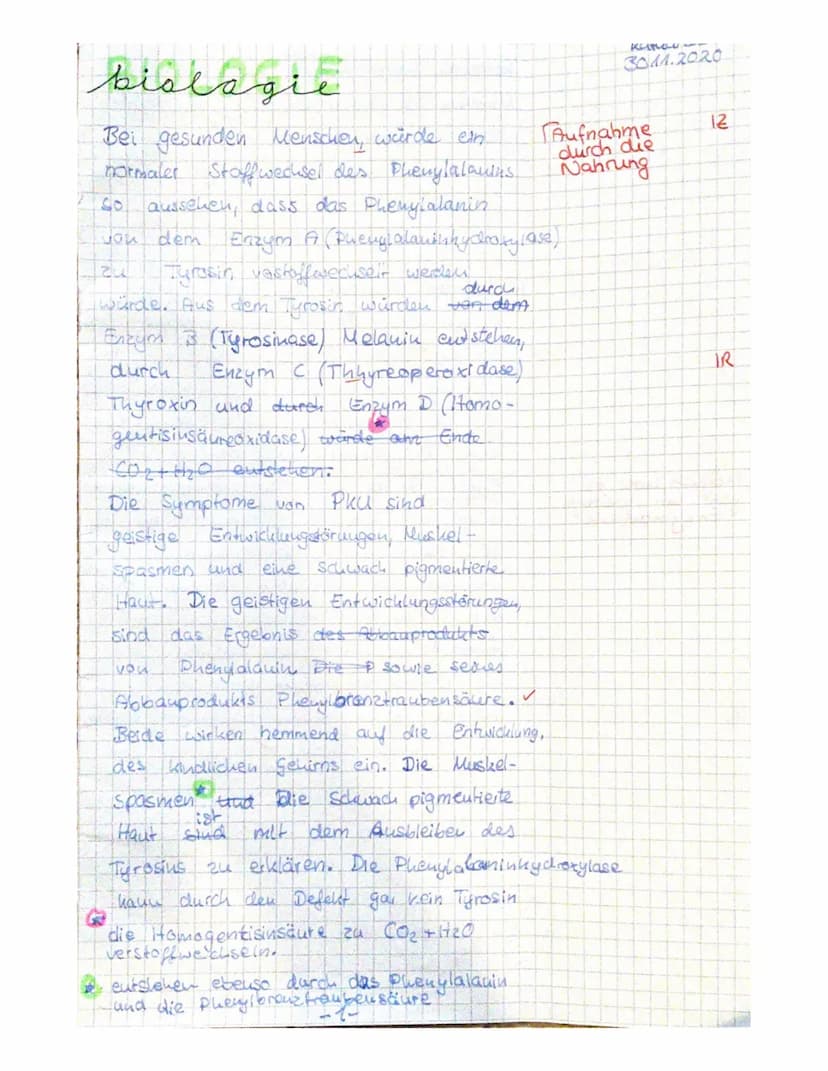 30.11.2020
BIOLOGIE
biologie
Bei gesunden Menschen, würde ein
Aufnahme
durch die
Nahrung
normaler Stoffwechsel des Phenylalanins
so aussehen, dass das Phenylalanin
von dem Enzym A (Phenylalaninhydroxylase)
zu Tyrosin verstoffwechselt werden
durch
würde. Aus dem Tyrosin würden von dem
Enzym B (Tyrosinase) Melanin entstehen,
durch Enzym C (Thhyreoperoxidase)
1R
Thyroxin und durch Enzym D (Homo-
gentisinsäureoxidase) würde am Ende
CO2 + H2O entstehen.
Die Symptome von PKU sind
geistige Entwicklungsstörungen, Muskel-
spasmen und eine schwach pigmentierte
Haut. Die geistigen Entwicklungsstörungen,
sind das Ergebnis des Abbauprodukts
von Phenylalanin Die P sowie seines
Abbauprodukts Phenylbranztraubensäure. ✓
Beide wirken hemmend auf die Entwicklung,
des kindlichen Gehirns ein. Die Muskel-
spasmen und Die schwach pigmentierte
ist
Haut sind mit dem Ausbleiben des
Tyrosins zu erklären. Die Phenylalaninhydroxylase
kann durch den Defekt gar kein Tyrosin
die Homogentisinsäure zu CO2 + H2O
verstoffwechseln.
entstehen ebenso durch das Phenylalanin
und die Phenylbranztraubensäure
-1-